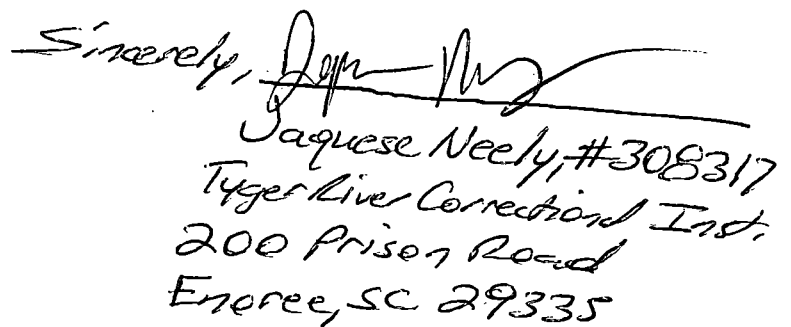 Sincerely,
Jaquese Neely, #308317
Tyger River Correctional Inst.
200 Prison Road
Enoree, SC 29335